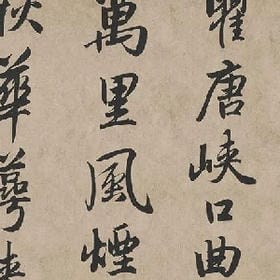 瞿唐峽口曲
萬里風煙
秋華萼夾